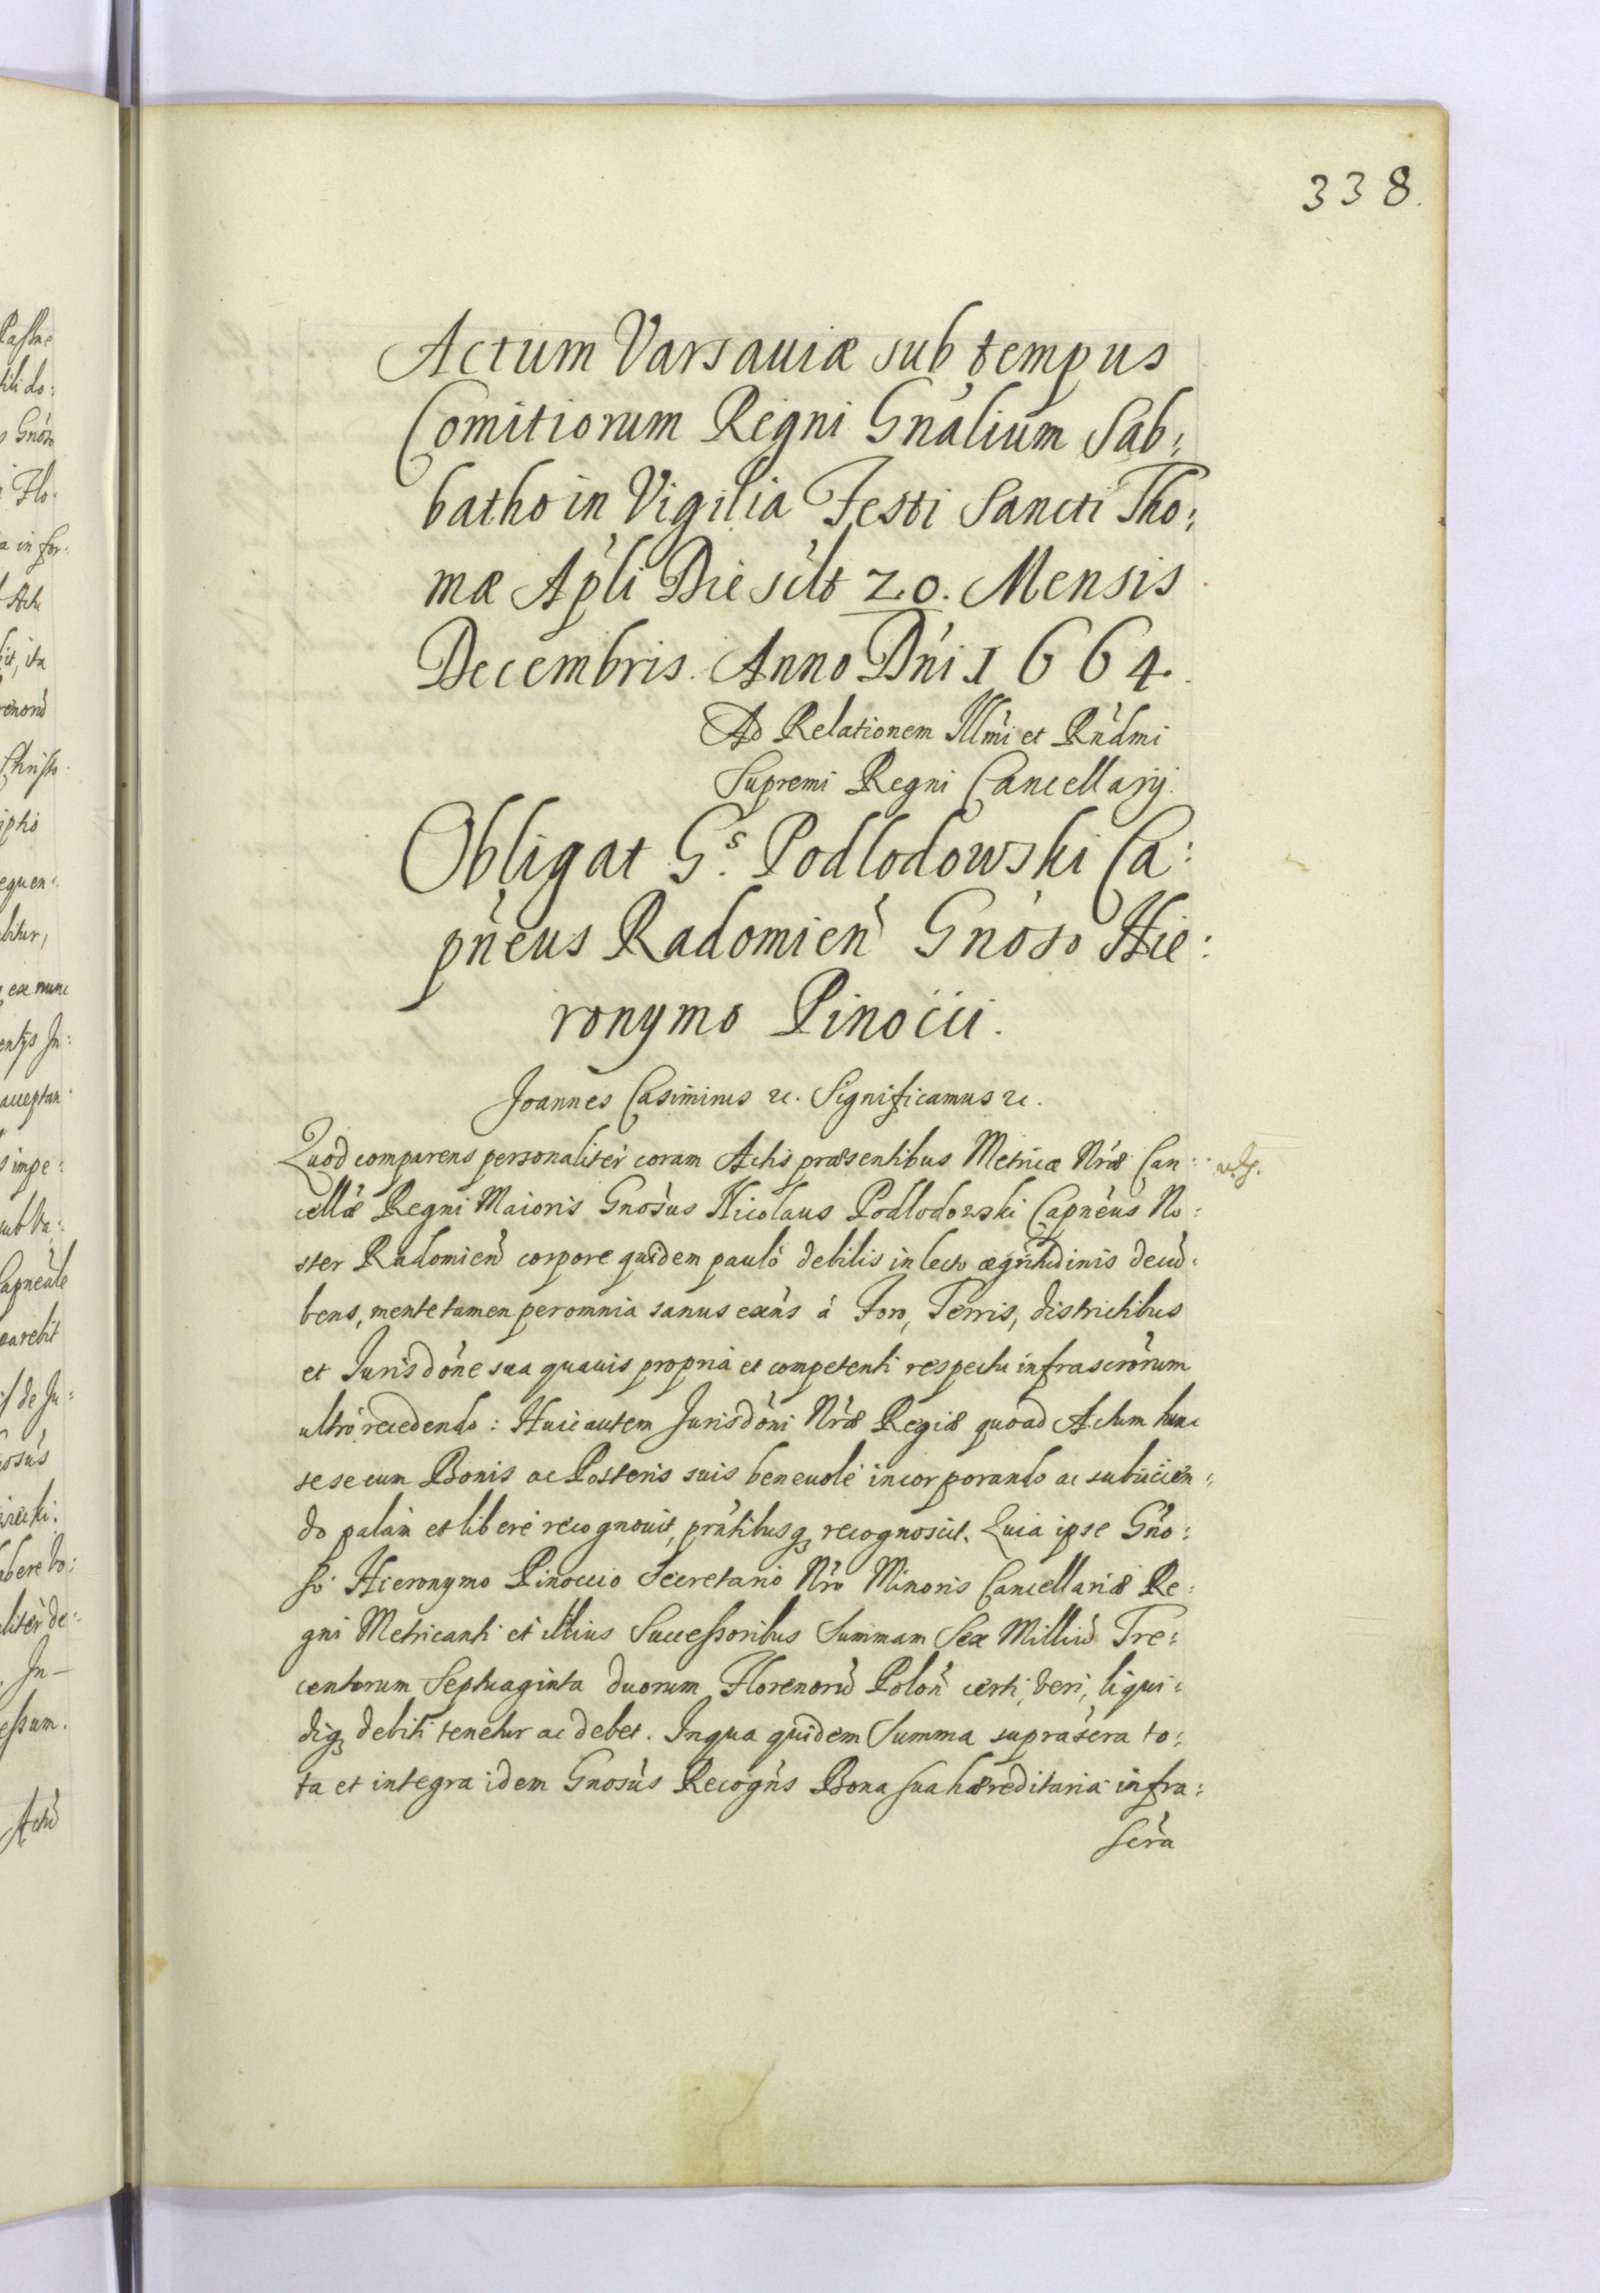 338.
Actum Varsauiæ sub tempus
Comitiorum Regni Gnàlium Sab:
batho in Vigilia Festi Sancti Tho:
mæ Ap̀li Die scìlt 20. Mensis
Decembris. Anno Dǹi 1664.
Ad Relationem Illm̀i et Rǹdmi
Supremi Regni Cancellarij.
Obligat Gs. Podlodowski Ca:
pǹeus Radomieǹ Gnòso Hie:
ronymo Pinocii.
Joannes Casimirus &c. Significamus &c.
Quod comparens personalitèr coram Actis præsentibus Metricæ Nr̀æ Can:
cellæ̀ Regni Maioris Gnosùs Nicolaus Podlodowski Capnèus No:
ster Radomieǹ corpore quidem paulò debilis in lecto ægritudinis decù:
bens, mente tamen per omnia sanus exǹs à Foro, Terris, districtibus
et Jurisdòne sua quauis propria et competenti respectu infrascròrum
ultrò recedendo: Huic autem Jurisdòni Nr̀æ Regiæ quoad Actum hunc
sese cum Bonis ac Posteris suis beneuolè incorporando ac subiicièn:
do palàm et liberè recognouit, pràtibusq; recognoscit. Quia ipse Gǹo:
so Hieronymo Pinoccio Secretario Nr̀o Minoris Cancellariæ Re:
gni Metricanti et illius Successoribus Summam Sex Milliù Tre:
centorum Septuaginta duorum Florenorù Poloǹ certi, veri, liqui:
diq; debiti tenetur ac debet. In qua quidem Summa suprascr̀a to:
ta et integra idem Gnosùs Recogǹs Bona sua hæreditaria infra:
scr̀a